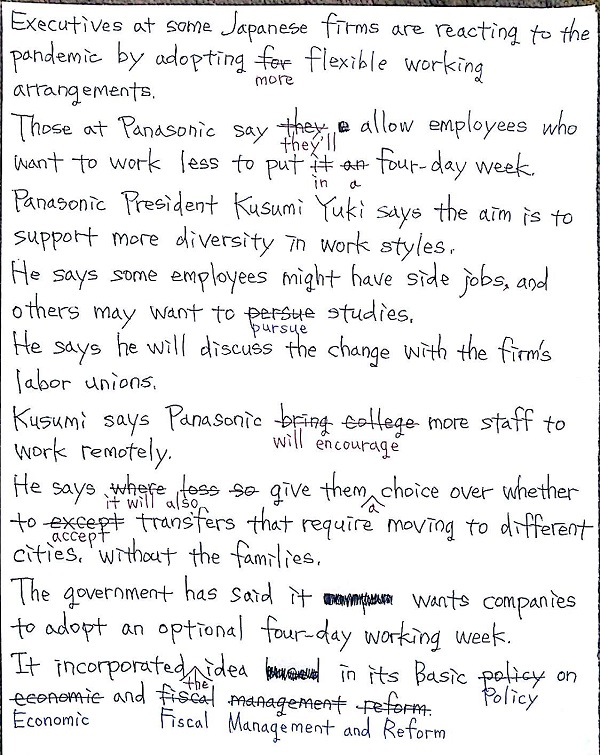 Executives at some Japanese firms are reacting to the
pandemic by adopting for flexible working
more
arrangements.
Those at Panasonic say they allow employees who
they'll
want to work less to put it an four-day week.
in a
Panasonic President Kusumi Yuki says the aim is to
support more diversity in work styles.
He says some employees might have side jobs, and
others may want to persue studies.
pursue
He says he will discuss the change with the firm's
labor unions.
Kusumi says Panasonic bring college more staff to
will encourage
work remotely.
He says where loss so give them choice over whether
it will also a
to except transfers that require moving to different
accept
cities. without the families.
The government has said it wants companies
to adopt an optional four-day working week.
It incorporated idea in its Basic policy on
the
economic and fiscal management reform.
Policy
Economic Fiscal Management and Reform